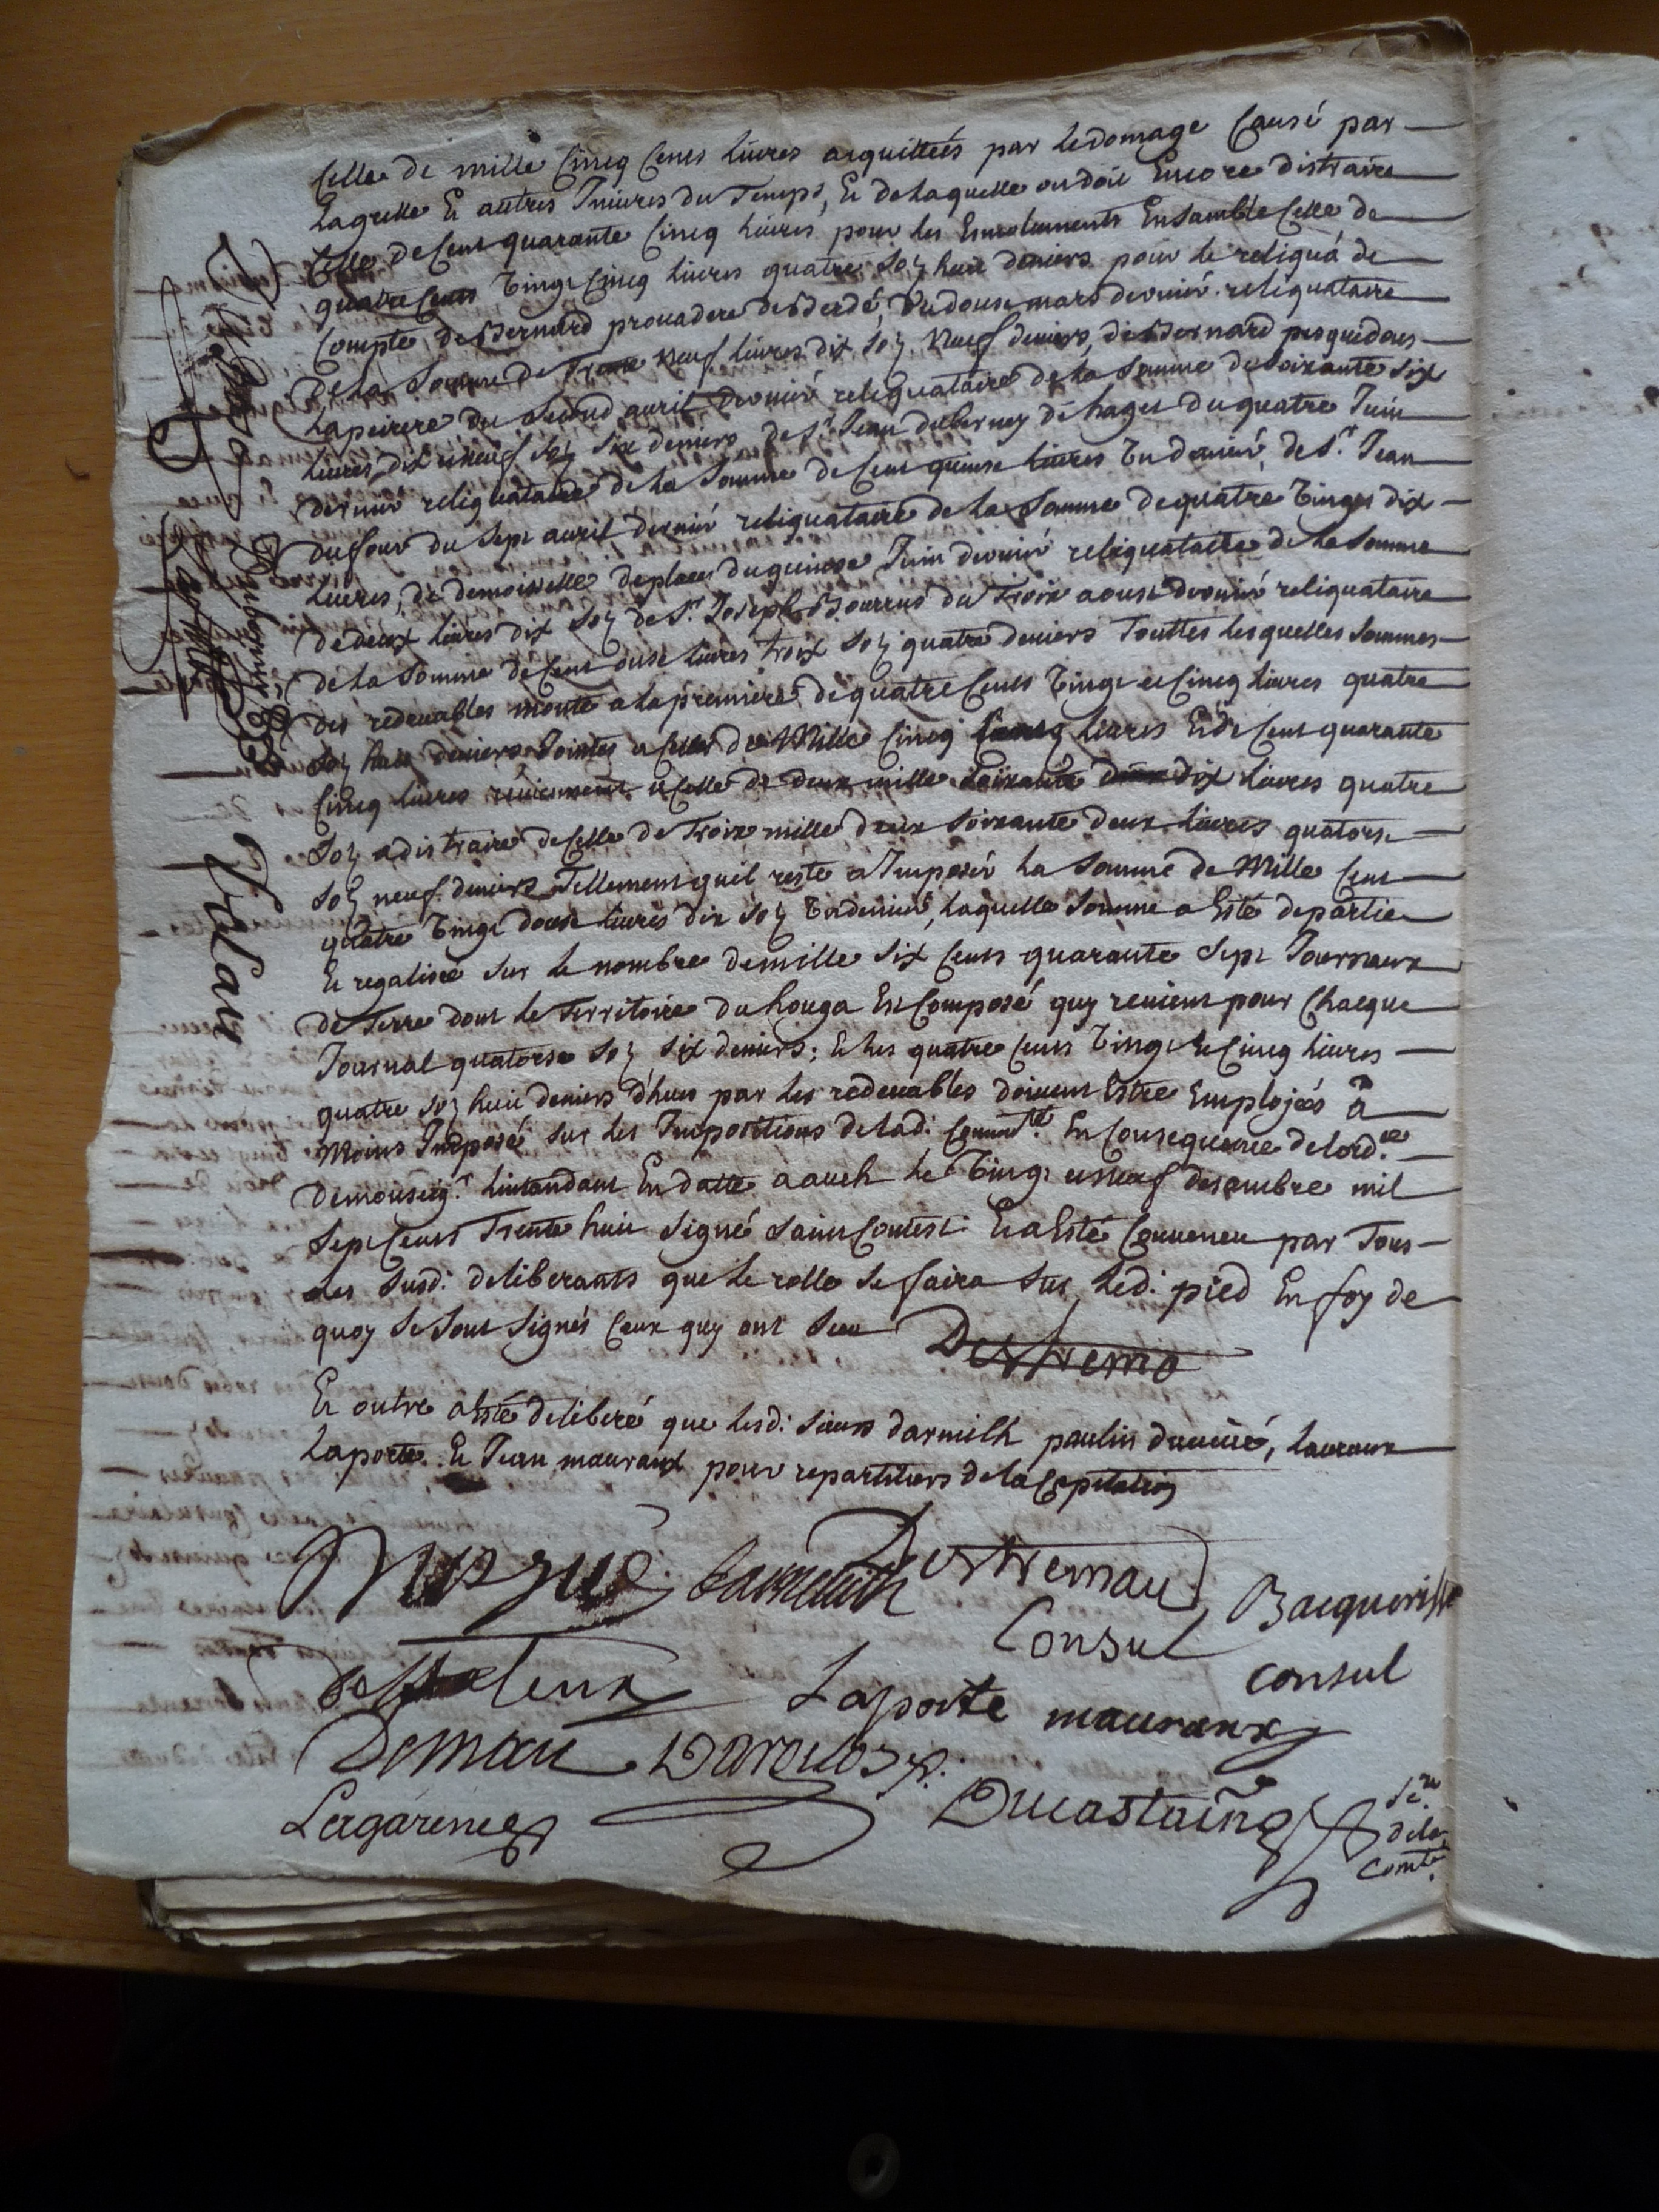 Celle de mille Cincq Cens livres acquittées par le domage Causé par
Lagrelle Et autres Iniures du Temps, Et de laquelle on doit Encore distraire
Celle de Cent quarante Cincq livres pour les Emoluments Ensamble Celle de
quatre Cents vingt Cincq livres quatre soz huit deniers pour le reliqua de
Compte de Bernard prouadere du douse mars dernier reliquataire
de la Somme de Trente neuf livres dix soz Neuf deniers, de Bernard pesquidous
Lapeirere du second auril dernier reliquataire de la Somme de soixante six
livres dix et neuf soz six deniers de Sr. Jean duberney de hages du quatre Juin
dernier reliquataire de la Somme de Cent quinse livres un denier, de Sr. Jean
dufour du sept auril dernier reliquataire de la Somme de quatre vingts dix
livres, de demoiselle deplaces du quinse Juin dernier reliquataire de la Somme
de deux livres dix soz de Sr. Joseph Bourrus du Troix aoust dernier reliquataire
de la Somme de Cent onse livres troix soz quatre deniers Touttes lesquelles Sommes
des redeuables monte a la premiere de quatre Cents vingt et Cincq livres quatre
soz huit deniers Jointes a Celles de Mille Cincq livres Et de Cent quarante
Cincq livres reuienent a Celle de deux mille soixante dix livres quatre
soz a distraire de Celle de Troix mille deux soixante deux livres quatorse
soz neuf deniers Tellement quil reste a Imposer la Somme de Mille Cent
quatre vingt douse livres dix soz un denier, laquelle Somme a Esté departie
Et regalisée sur le nombre de mille six Cents quarante sept Journaux
de Terre dont le Territoire du houga Est Composé quy reuient pour Chacque
Journal quatorse soz six deniers; Et les quatre Cents vingt Et Cincq livres
quatre soz huit deniers d'hues par les redeuables doiuent Estre Employés a
Moins Imposé sur les Impositions de ladi. Commté. En Consequence de lordce.
de monseigr. lintandant En datte a auch le vingt et neuf desambre mil
sept Cents Trente huit signé saint Contest Et a Esté Conuenu par Tous
les susdi. deliberants que le rolle se faira sur ledi. pied En foy de
quoy se sont signés Ceux quy ont seu
Et outre a Esté deliberé que lesdi. sieurs darmilh paulin laurans
Laporte Et Jean mauraux pour repartiturs de la Capitation
Destremau
Consul
Bacquerisse
consul
Laporte mauraux
Deman
Lagarene
Ducastaing
de la
Comté.